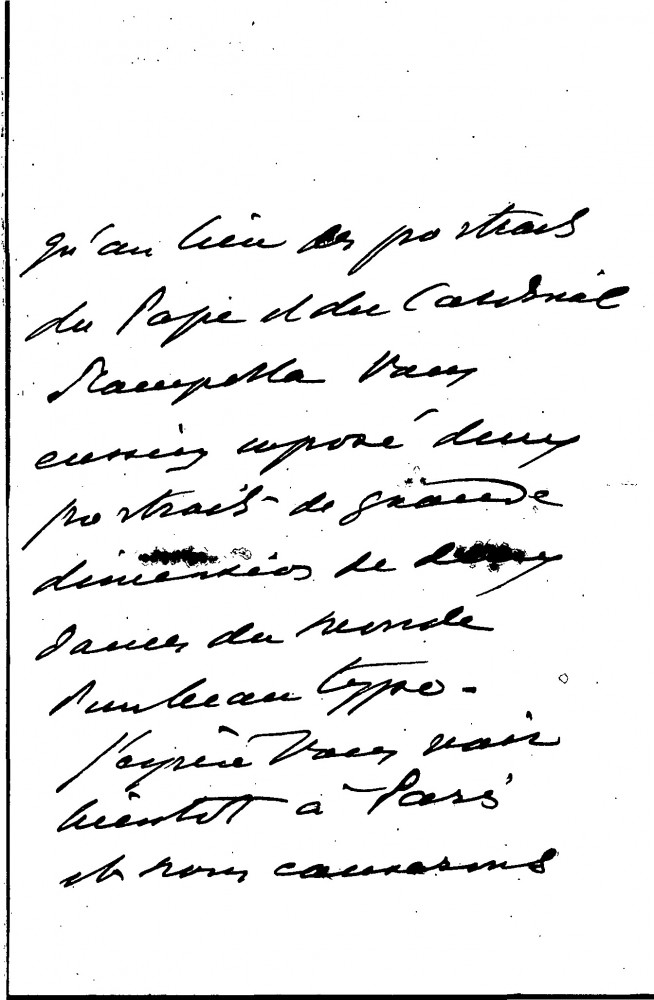 qu'au lieu des portraits
du Pape et du Cardinal
Rampolla vous
eussiez exposé deux
portraits de grande
dimension de deux
dames du monde
d'un beau type.
J'espère vous voir
bientôt à Paris
et nous causerons